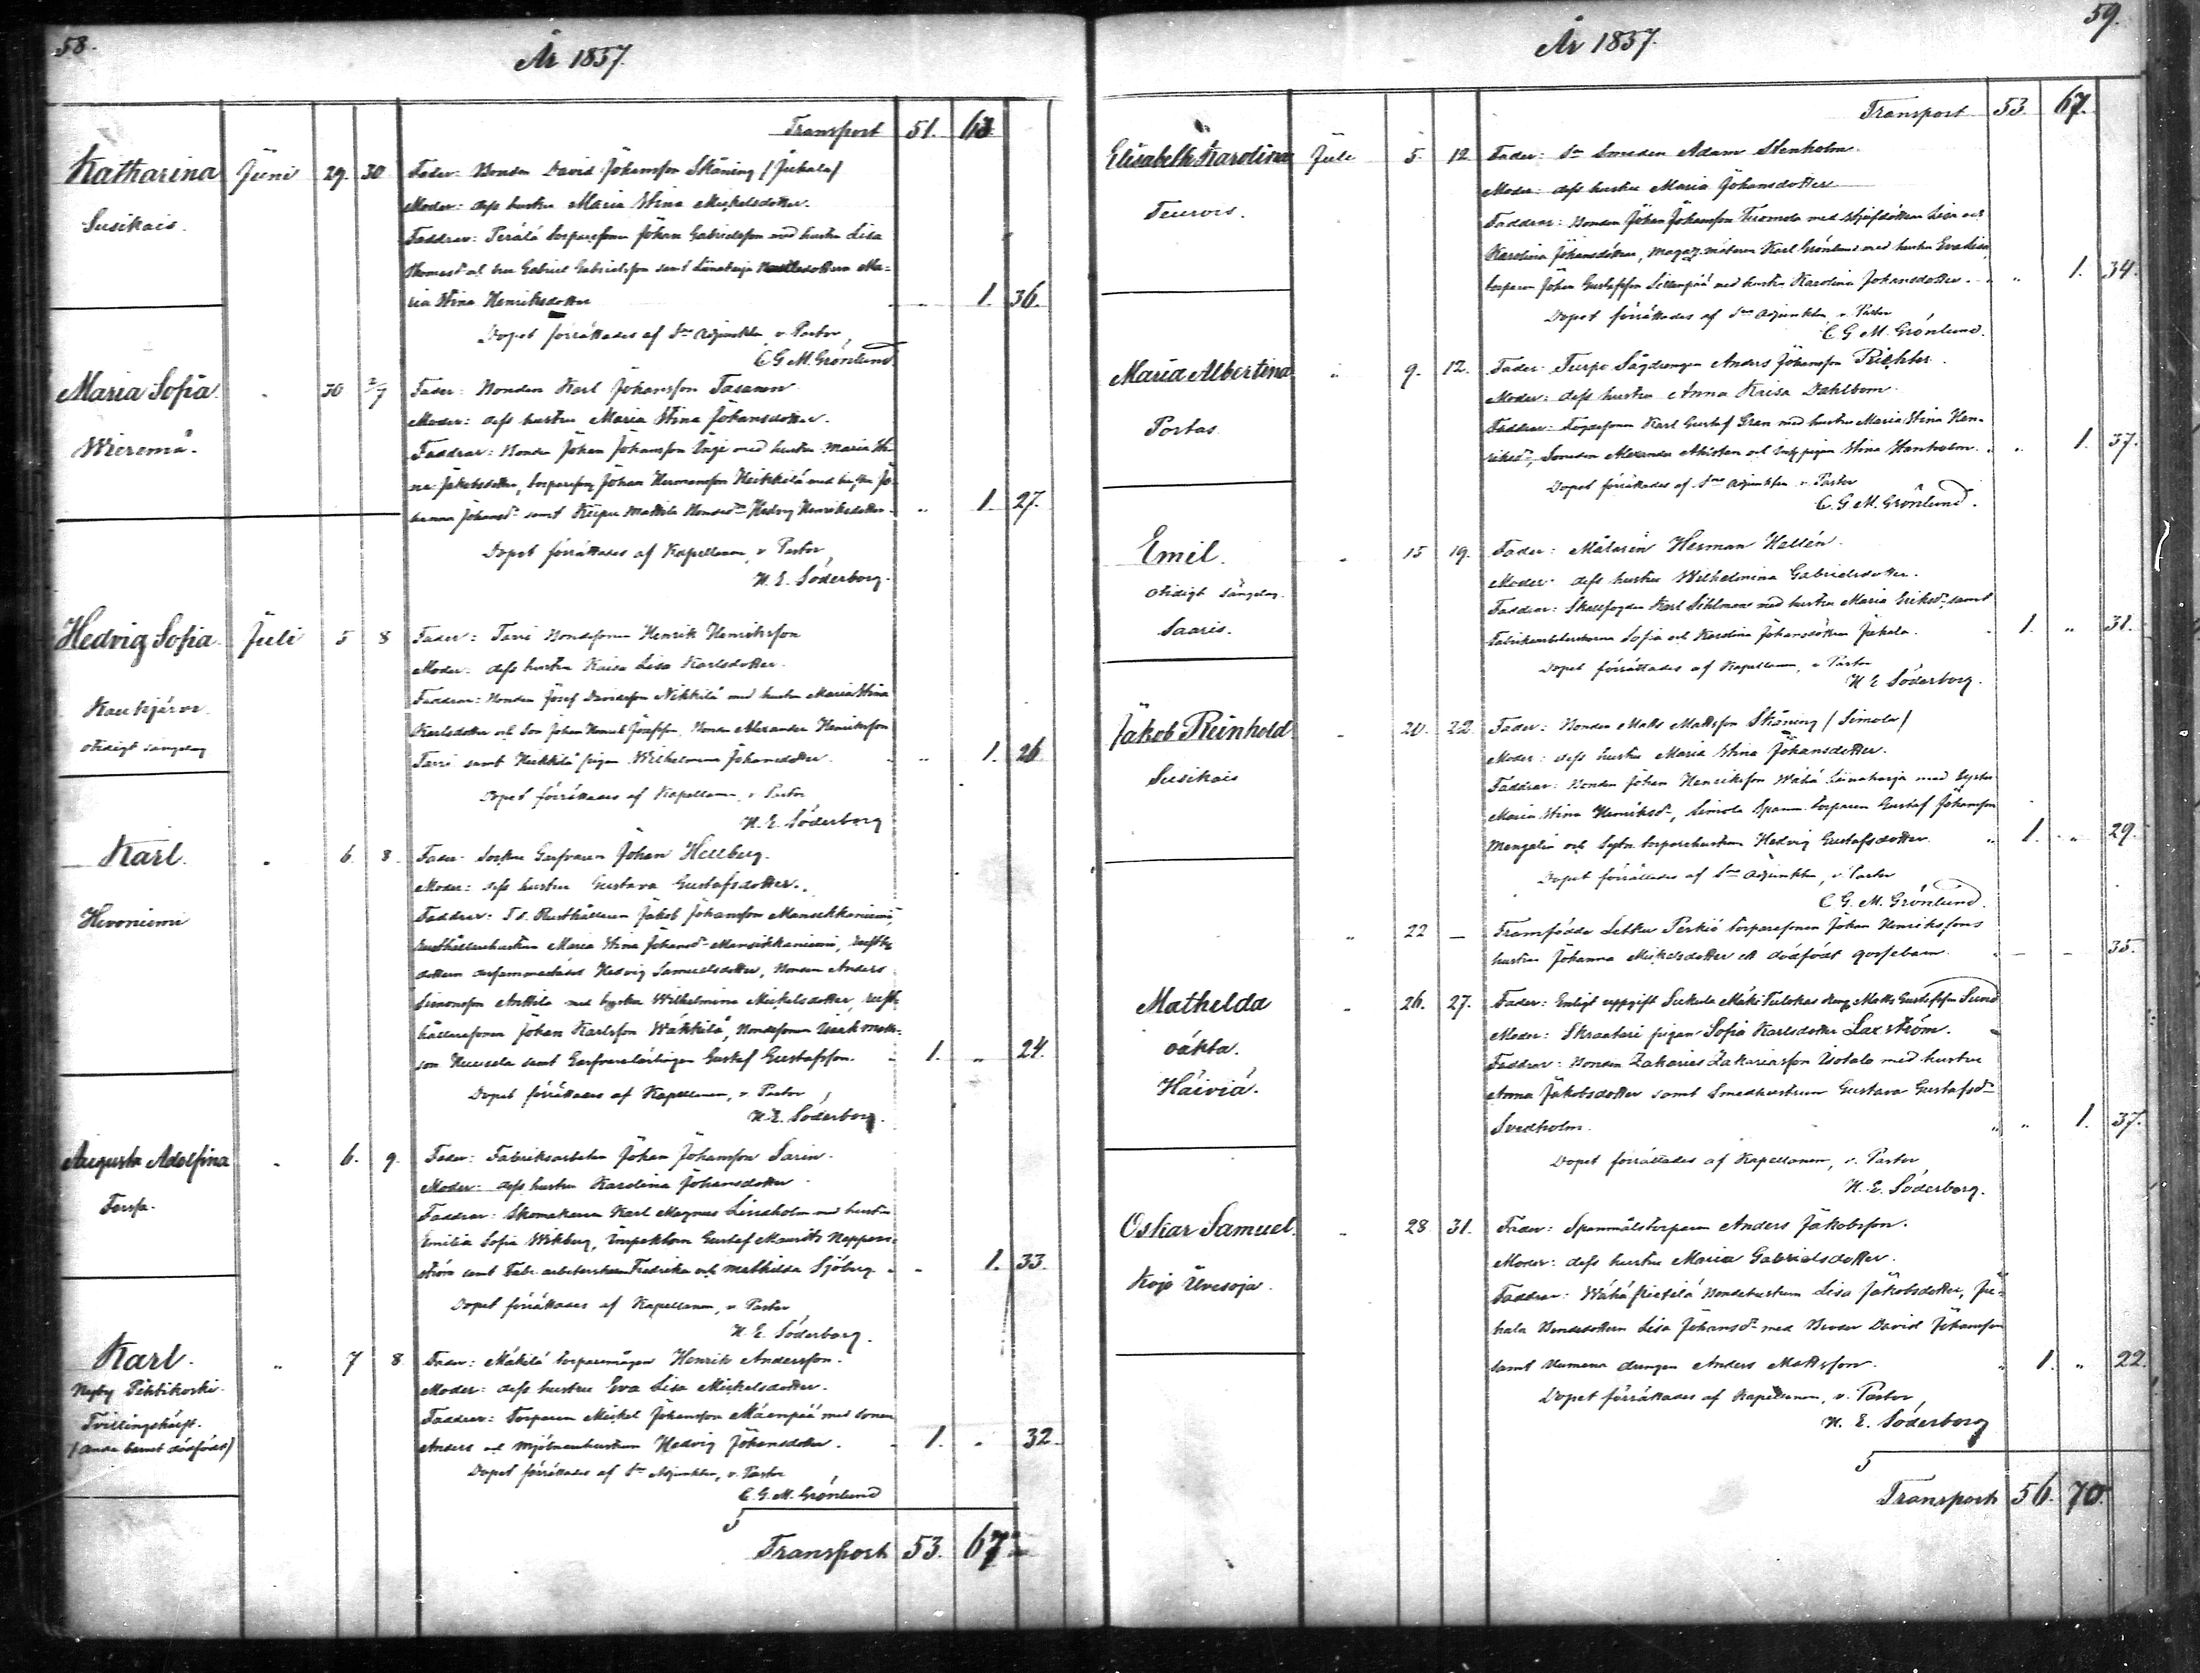 58.
År 1857.
Transport 51. 63
Katharina Juni 29. 30 Fader: Bonden David Johansson Skoning /Juhala/
Susikais. Moder: dess hustru Maria Stina Mickelsdotter.
Faddrar: Perälä torparesonen Johan Gabrielsson med hustru Lisa
Thomasdr och bror Gabriel Gabrielsson samt Ma-
ria Stina Henriksdotter " 1. 36.
Dopet förrättades af Sne Adjunkten, v. Pastor,
C G M. Grönlund
Maria Sofia " 30 2/7 Fader: Bonden Karl Johansson Tasanen
Wieremä. Moder: dess hustru Maria Stina Johansdotter.
Faddrar: Bonden Johan Johansson Unji med hustru Maria Sti-
na Jakobsdotter, Johan Hermansson Heikkilä med hustru Jo-
hanna Johansdr samt Mattila Hedvig Henriksdotter. " 1. 27.
Dopet förrättades af Kapellanen, v Pastor,
N. E. Söderborg.
Hedvig Sofia. Juli 5 8 Fader: Tarri Bondesonen Henrik Henriksson
Moder: dess hustru Kaisa Lisa Karlsdotter.
Kauhijärvi Faddrar: Bonden Josef Davidsson Nikkilä med hustru Maria Stina
otidigt sängelag Karlsdotter och Son Johan Henrik Josefsson, Bonden Alexander Henriksson
Tarri samt Heikkilä pigan Wilhelmina Johansdotter. " 1. 26
Dopet förrättades af Kapellanen, v Pastor
N. E. Söderborg
Karl. " 6. 8. Fader: Garfvaren Johan Hellberg.
Moder: dess hustru Gustava Gustafsdotter.
Hevoniemi Faddrar: Rusthållaren Jakob Johansson Mansikkaniemi,
Rusthållarehustrun Maria Stina Johansdr Mansikkaniemi,
dottern Hedvig Samuelsdotter, Bonden Anders
Simonsson Anttila med syster Wilhelmina Mickelsdotter, rust-
hållaresonen Johan Karlsson Wäkkilä, Bondesonen Isak Matts-
son samt Garfvarelärlingen Gustaf Gustafsson. " 1. " 24.
Dopet förrättades af Kapellanen, v. Pastor,
N. E. Söderborg.
Augusta Adolfina " 6. 9. Fader: Fabriksarbetaren Johan Johansson Sarin.
Moder: dess hustru Karolina Johansdotter
Forssa. Faddrar: Skomakaren Karl Magnus Lindholm med hustru
Emilia Sofia Wikberg, Inspektorn Gustaf Mauritz
ström samt Fabr. arbeterskan Fredrika och Mathilda Sjöberg " 1. 33.
Dopet förrättades af Kapellanen, v. Pastor
N. E. Söderborg.
Karl. " 7 8 Fader: Mäkilä torparemågen Henrik Andersson.
Nyby Pehtikoski. Moder: dess hustru Eva Lisa Mickelsdotter.
Tvillingskäpt. Faddrar: Torparen Mickel Johansson Mäenpää med sonen
/andra barnet dödfödt/ Anders och Mjölnarehustrun Hedvig Johansdotter. 1. " 32
Dopet förrättades af Sne Adjunkten, v. Pastor
C. G. M. Grönlund
5
Transport 53. 67
59.
År 1857.
Transport 53. 67.
Elisabeth Karolina Juli 5. 12 Fader: Smeden Adam Stenholm.
Moder: dess hustru Maria Johansdotter
Teuvois. Faddrar: Bonden Johan Johansson Tuomola med Lisa och
Karolina Johansdotter, Karl Grönlund med hustru Eva Lisa,
torparen Johan Gustafsson med hustru Karolina Johansdotter. " 1. 34.
Dopet förrättades af Sne Adjunkten v. Pastor
C G M. Grönlund.
Maria Albertina " 9. 12. Fader: Turpo Sågdrengen Anders Johansson Richter.
Moder: dess hustru Anna Kaisa Dahlbom.
Portas. Faddrar: Karl Gustaf Gran med hustru Maria Stina Hen-
riksdr, Smeden Alexander och pigan Stina " 1. 37.
Dopet förrättades af Sne Adjunkten v. Pastor
C. G. M. Grönlund.
Emil. " 15 19. Fader: Målaren Herman Hellén.
otidigt sängelag. Moder: dess hustru Wilhelmina Gabrielsdotter.
Faddrar: Skallfogden Karl Sihlman med hustru Maria Eriksdr samt
Saaris. Sofia och Karolina Johansdotter Juhala. " 1. " 31.
Dopet förrättades af Kapellanen, v Pastor
N. E Söderborg.
Jakob Reinhold. " 20. 22. Fader: Bonden Matts Mattsson Skoning /Simola/
Moder: dess hustru Maria Stina Johansdotter.
Susikais Faddrar: Bonden Johan Henriksson Wähä med Syster
Maria Stina Henriksdr, Simola Spanm. torparen Gustaf Johansson
Mengelin och torparehustrun Hedvig Gustafsdotter. " 1. " 29.
Dopet förrättades af Sne Adjunkten, v Pastor
C. G. M. Grönlund.
" 22 — Framfödde Perkiö torparesonen Johan Henrikssons
hustru Johanna Mickelsdotter ett dödfödt gossebarn. — — 35.
Mathelda " 26. 27. Fader: Enligt uppgift Mäki dreng Matts Gustafsson Sund
oäkta. Moder: Skraatari pigan Sofia Karlsdotter Laxström.
Faddrar: Bonden Zakarias Zakariasson Isotalo med hustru
Häiviä. Anna Jakobsdotter samt Smedhustrun Gustava Gustafsdr
Svedholm. " " 1. 37.
Dopet förrättades af Kapellanen, v. Pastor
N. E. Söderborg.
Oskar Samuel. " 28 31. Fader: Spanmålstorparen Anders Jakobsson.
Moder: dess hustru Maria Gabrielsdotter.
Kojo Faddrar: Wähä Bondehustrun Lisa Jakobsdotter, Ju-
hala Bondedottern Lisa Johansdr med Broder David Johansson
samt drengen Anders Mattsson. " 1. " 22.
Dopet förrättades af Kapellanen, v. Pastor,
N. E. Söderborg
5
Transport 56. 70.